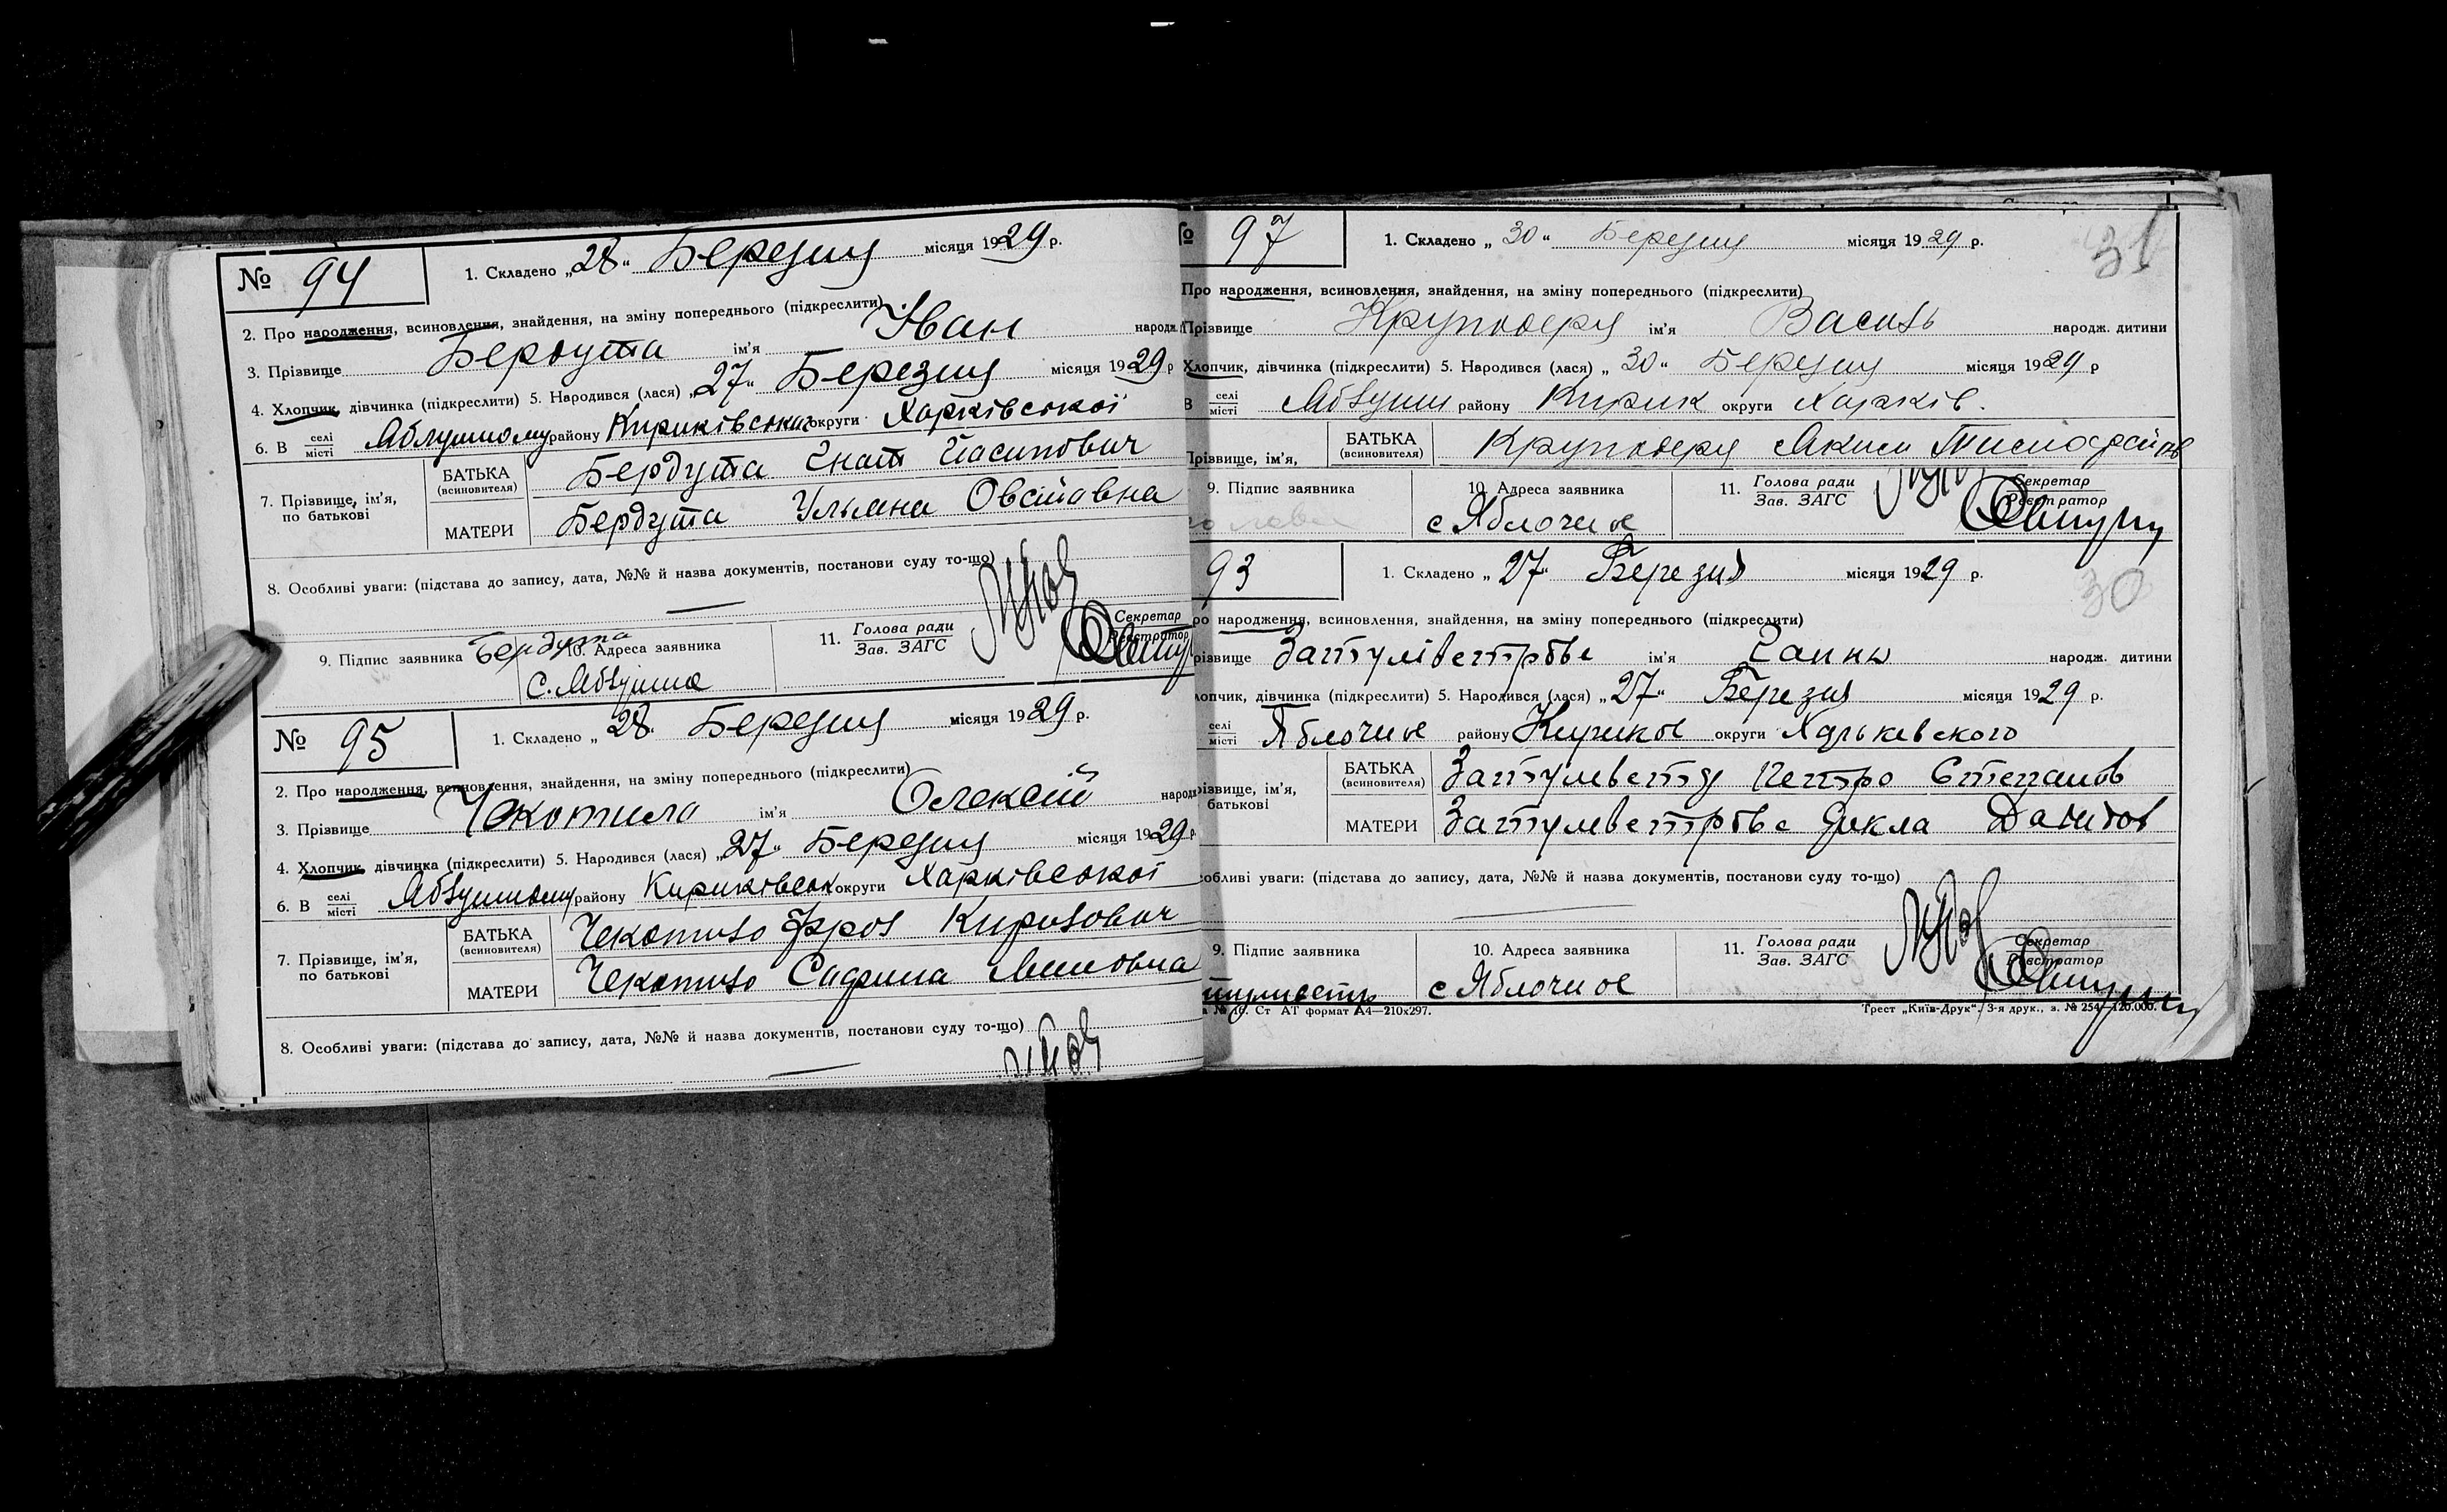 № 94
1. Складено „28“ Березня місяця 1929 р.
2. Про народження, всиновлення, знайдення, на зміну попереднього (підкреслити)
3. Прізвище Бердута ім'я Іван народж
4. Хлопчик, дівчинка (підкреслити) 5. Народився (лася) „27“ Березня місяця 1929 р
6. В селі місті Яблушному району округи Харківської
7. Прізвище, ім'я, по батькові
БАТЬКА (всиновителя) Бердута Гнат Йасипович
МАТЕРИ Бердута Ульяна
8. Особливі уваги: (підстава до запису, дата, №№ й назва документів, постанови суду то-що)
9. Підпис заявника Бердута
10. Адреса заявника
с.
11. Голова ради Зав. ЗАГС
Секретар Реєстратор
№ 95
1. Складено „28“ Березня місяця 1929 р.
2. Про народження, всиновлення, знайдення, на зміну попереднього (підкреслити)
3. Прізвище ім'я Олексій народж
4. Хлопчик, дівчинка (підкреслити) 5. Народився (лася) „27“ Березня місяця 1929 р
6. В селі місті Яблушному району Кириківськ округи Харківської
7. Прізвище, ім'я, по батькові
БАТЬКА (всиновителя) Чекотило Фрол Кирилович
МАТЕРИ Чекотило
8. Особливі уваги: (підстава до запису, дата, №№ й назва документів, постанови суду то-що)
№ 97
31
1. Складено „30“ Березня місяця 1929 р.
Про народження, всиновлення, знайдення, на зміну попереднього (підкреслити)
Прізвище Круподеря ім'я Василь народж. дитини
Хлопчик, дівчинка (підкреслити) 5. Народився (лася) „30“ Березня місяця 1929 р
В селі місті району Кирик округи Харків.
Прізвище, ім'я,
БАТЬКА (всиновителя) Круподеря Яким
9. Підпис заявника
10. Адреса заявника
с Яблочное
11. Голова ради Зав. ЗАГС
Секретар Реєстратор
93
30
1. Складено „27“ Березня місяця 1929 р.
ро народження, всиновлення, знайдення, на зміну попереднього (підкреслити)
різвище ім'я Ганна народж. дитини
лопчик, дівчинка (підкреслити) 5. Народився (лася) „27“ Березня місяця 1929 р.
селі місті Яблочное району округи Харьковского
різвище, ім'я, батькові
БАТЬКА (всиновителя) Петро Степанов
МАТЕРИ Давидов
собливі уваги: (підстава до запису, дата, №№ й назва документів, постанови суду то-що)
9. Підпис заявника
10. Адреса заявника
с Яблочное
11. Голова ради Зав. ЗАГС
Секретар Реєстратор
а № 16. Ст АТ формат А4—210х297.
Трест „Київ-Друк“. 3-я друк., з. № 254—120.000.